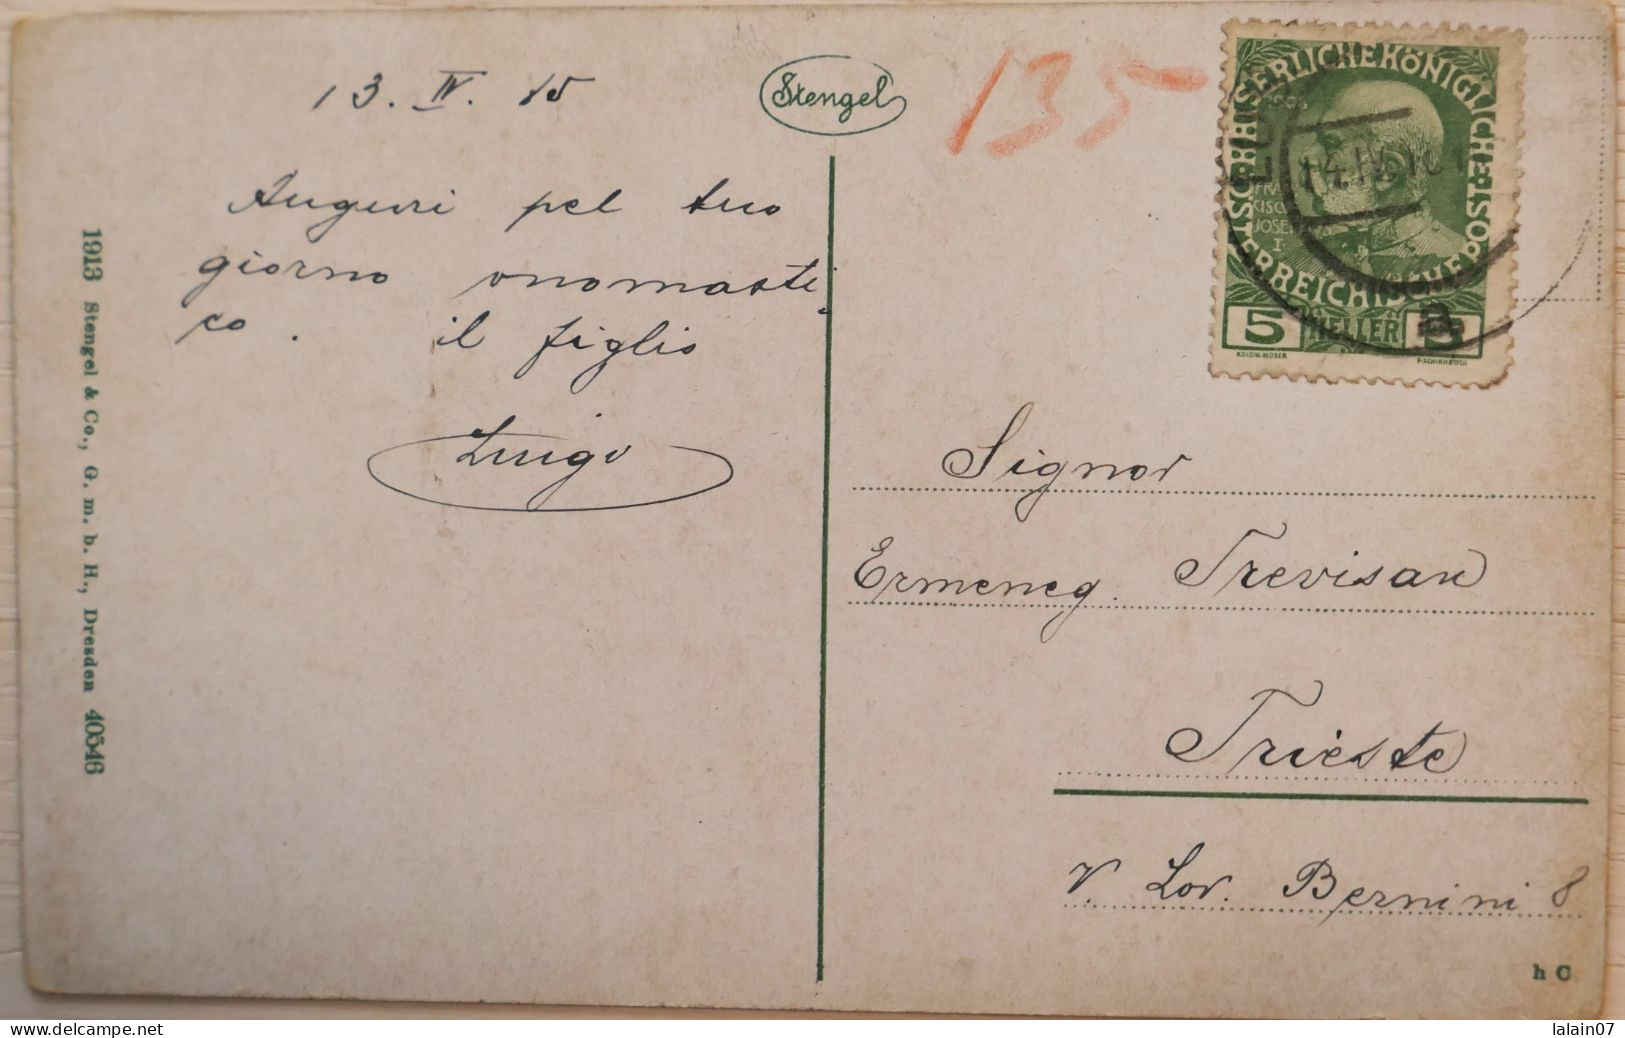 13. IV. 15
Stengel
135
Auguri pel tuo
giorno onomasti
co. il figlio
Luigi
1913 Stengel & Co., G. m. b. H., Dresden 40546
KAISERLICHE KÖNIGLICHE
ÖSTERREICHISCHE POST
1908
FRAN
CISCVS
JOSEPHVS
I
14.IV.
a
5 HELLER 5
KOLOM.MOSER
F.SCHIRNBÖCK
Signor
Ermeneg. Trevisan
Trieste
V. Lor. Bernini 8
h C
delcampe.net
lalain07